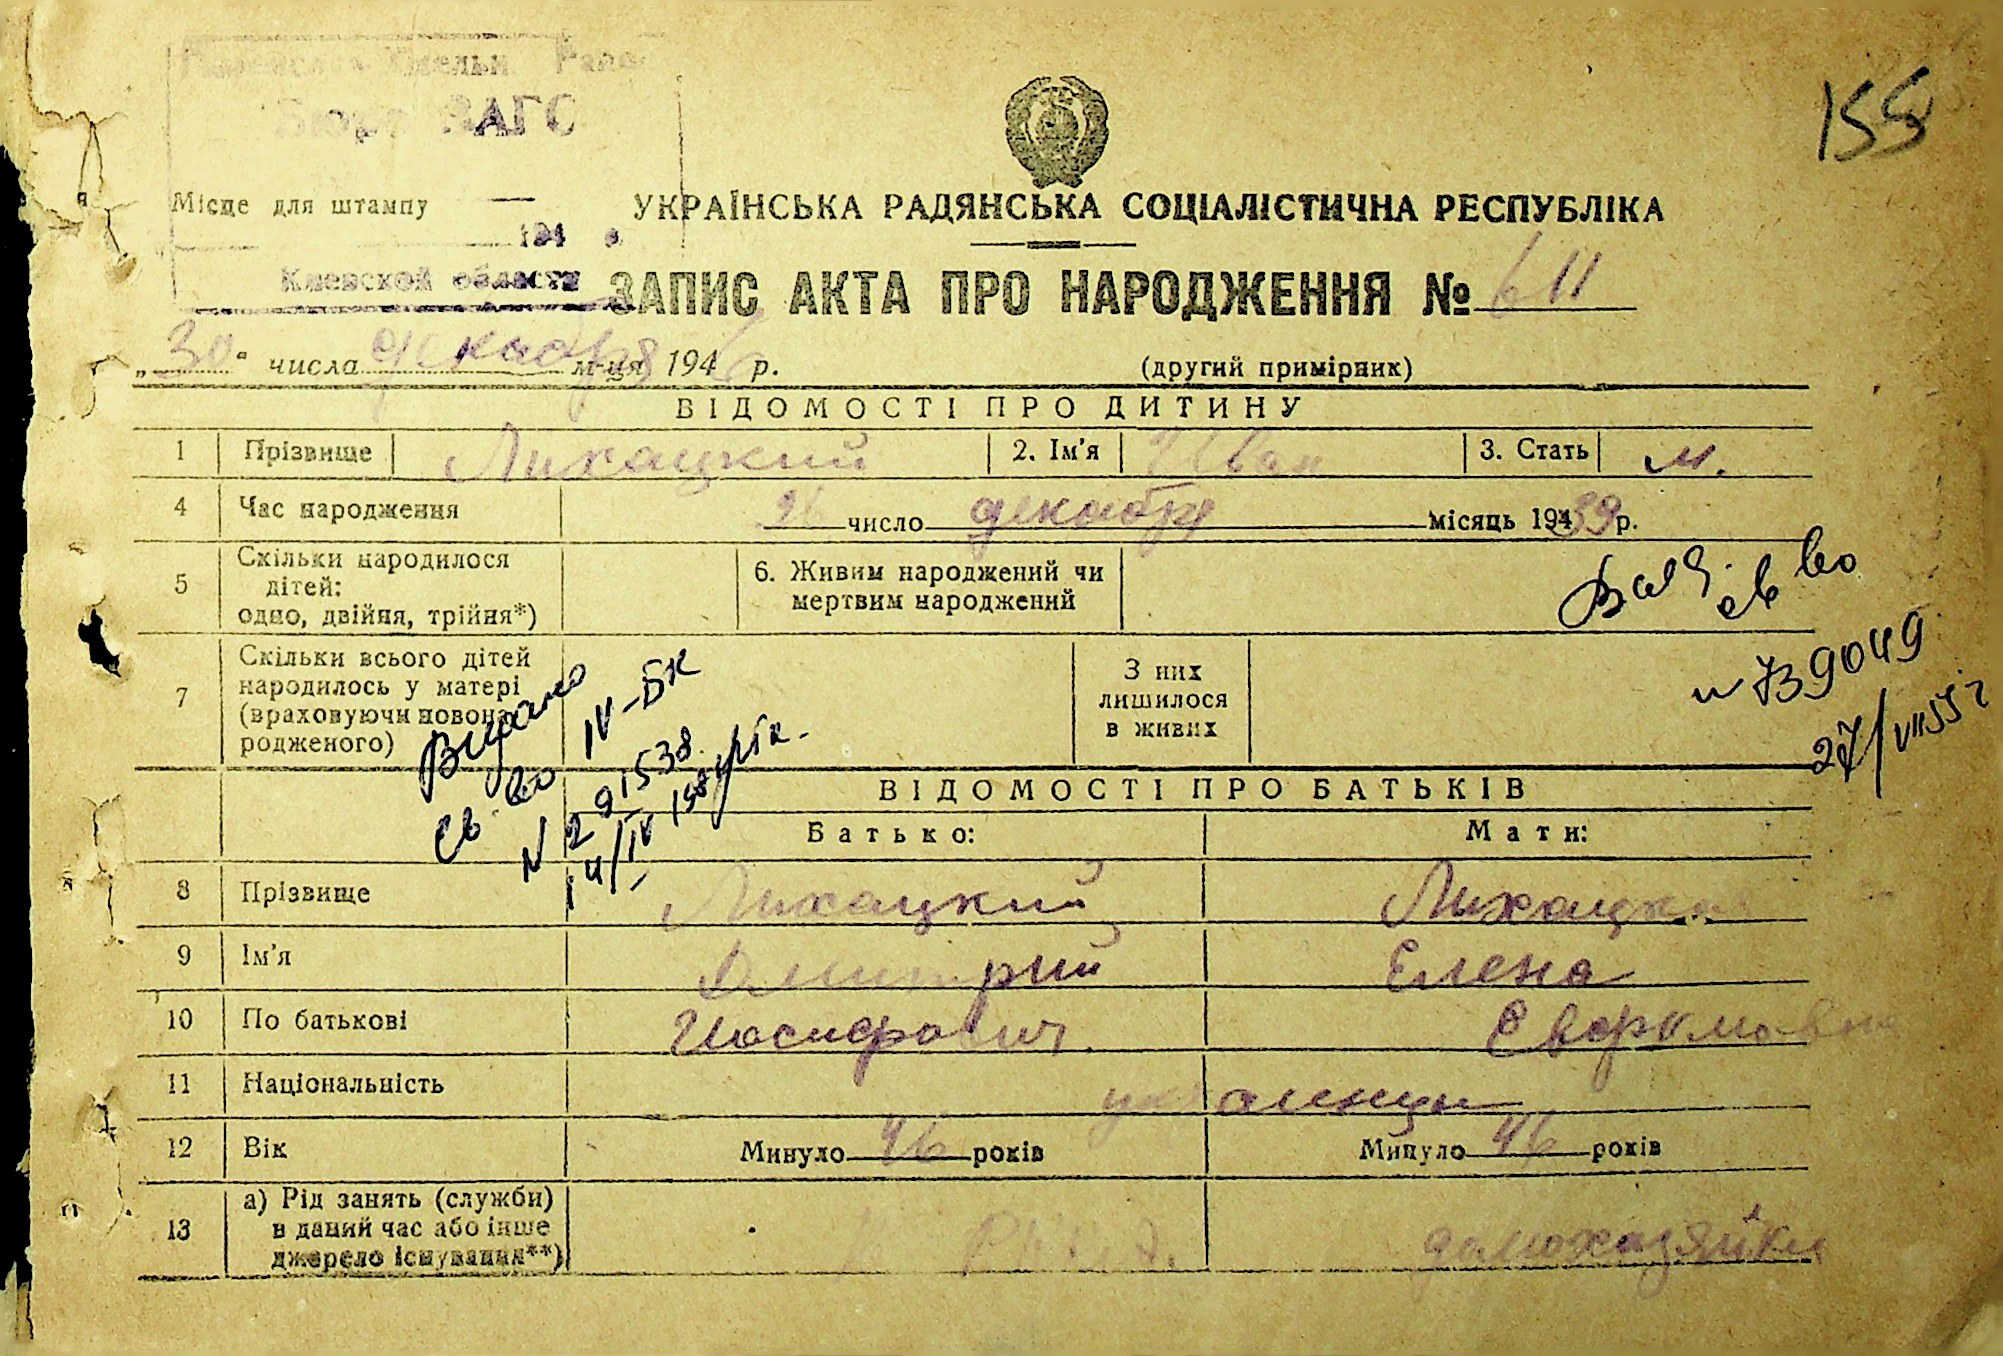 155
Бюро ЗАГС
Місце для штампу
194
Киевской области
УКРАЇНСЬКА РАДЯНСЬКА СОЦІАЛІСТИЧНА РЕСПУБЛІКА
ЗАПИС АКТА ПРО НАРОДЖЕННЯ № 611
„30“ числа декабря м-ця 1946 р. (другий примірник)
ВІДОМОСТІ ПРО ДИТИНУ
1 Прізвище Лихацкий 2. Ім'я Иван 3. Стать м.
4 Час народження число декабря місяць 1939 р.
5 Скільки народилося
дітей:
одно, двійня, трійня*)
6. Живим народжений чи
мертвим народжений
св во
739049
27/VII 55 г
7 Скільки всього дітей
народилось у матері
(враховуючи новона-
родженого)
З них
лишилося
в живих
Видано
св во IV-БК
N 291538
14/IV 198
ВІДОМОСТІ ПРО БАТЬКІВ
Батько: Мати:
8 Прізвище Лихацкий Лихацкая
9 Ім'я Дмитрий Елена
10 По батькові Иосифович
11 Національність украинцы
12 Вік Минуло 46 років Минуло 46 років
13 а) Рід занять (служби)
в даний час або інше
джерело існування**)
домохазяйка